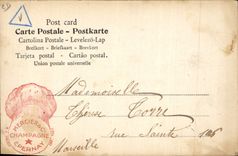 Post card
Carte Postale - Postkarte
Cartolina Postale - Levelező-Lap
Brefkort - Briefkaart - Brevkort
Tarjeta postal - Cartão postal.
Union postale universelle
CHAMPAGNE
EPERNAY
Mademoiselle
Torre
rue Sainte
Marseille